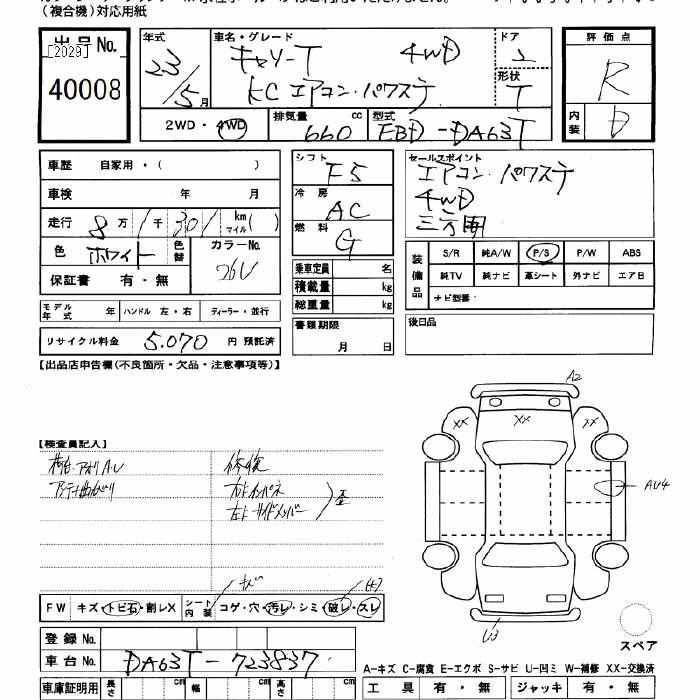 （複合機）対応用紙
出品No.
[2029]
40008
年式
23/5月
車名・グレード
キャリーT 4WD
KC エアコン・パワステ
ドア
2
形状
T
評価点
R
内装
D
2WD・4WD
排気量
660 cc
型式
EBD-DA63T
車歴 自家用・( )
車検 年 月
走行 8万1千301 km マイル( )
色 ホワイト 色替
カラーNo.
26U
保証書 有・無
モデル年式 年 ハンドル 左・右 ディーラー・並行
リサイクル料金 5,070 円 預託済
シフト
F5
冷房
AC
燃料
G
乗車定員 名
積載量 kg
総重量 kg
書類期限
月 日
セールスポイント
エアコン・パワステ
4WD
三方開
装備品
S/R 純A/W P/S P/W ABS
純TV 純ナビ 革シート 外ナビ エアB
ナビ型番：
後日品
【出品店申告欄(不良箇所・欠品・注意事項等)】
【検査員記入】
荷台・アオリAU
修復
アンテナ曲がり
右インパネ
左サイドメンバー
歪
A2
XX
XX
XX
AU4
U3
FW キズ・トビ石・割レX
シート内装 コゲ・穴・汚レ・シミ・破レ・スレ
スペア
登録No.
車台No. DA63T-723837
A-キズ C-腐食 E-エクボ S-サビ U-凹ミ W-補修 XX-交換済
車庫証明用 長さ cm 幅 cm 高さ cm
工具 有・無 ジャッキ 有・無